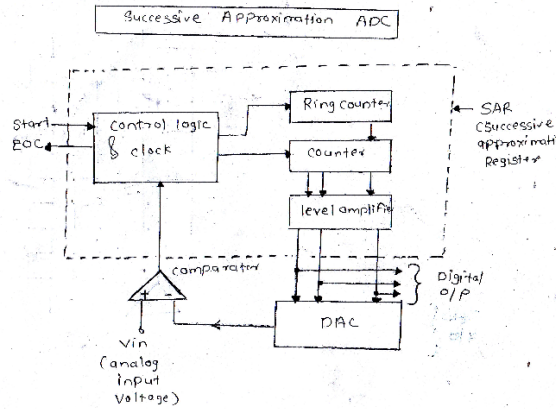 Successive Approximation ADC
Start
EOC
Control logic
& clock
Ring counter
Counter
level amplifie
SAR
(Successive
approximati
Register
Comparator
+ -
Digital
O/P
DAC
Vin
(analog
input
Voltage)